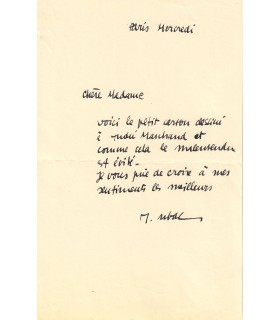 Paris Mercredi
Chère Madame
voici le petit carton destiné
à André Marchand et
comme cela le malentendu
est évité.
je vous prie de croire à mes
sentiments les meilleurs
R. Ubac